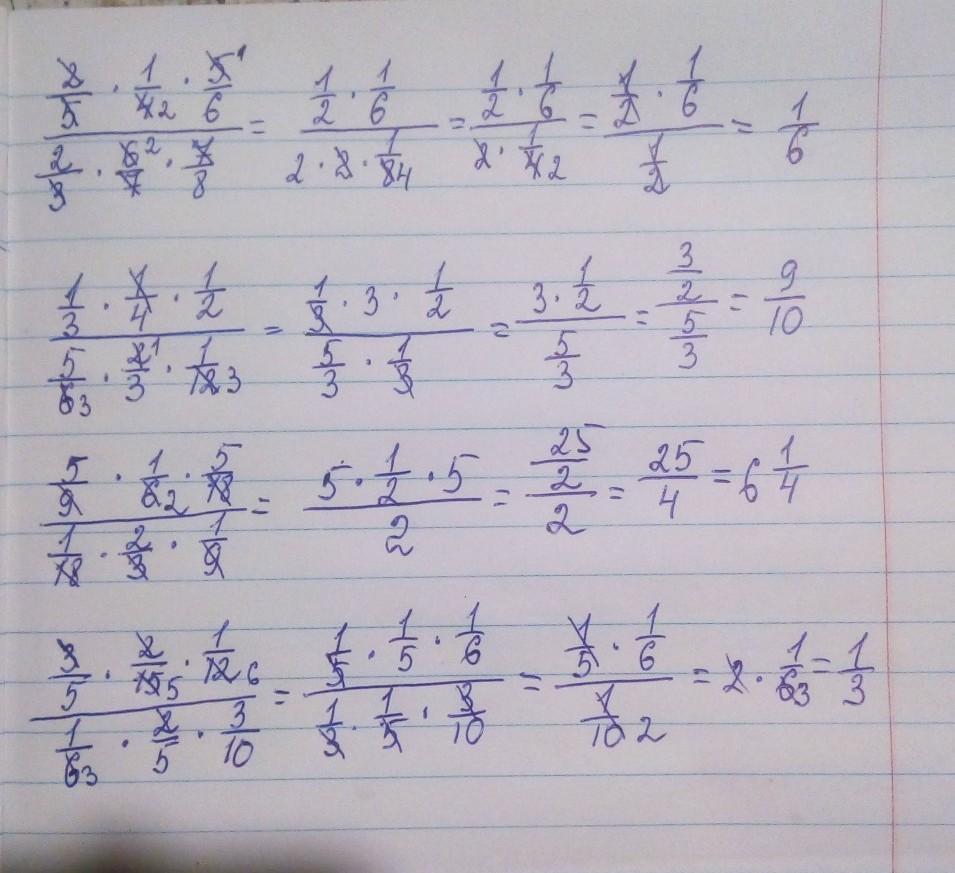 (2/5 · 1/4 2 · 5 1/6)/(2/3 · 6 2/7 · 7/8) = (1/2 · 1/6)/(2 · 2 · 1/8 4) = (1/2 · 1/6)/(2 · 1/4 2) = (1/2 · 1/6)/(1/2) = 1/6
(1/3 · 1/4 · 1/2)/(5/6 3 · 2 1/3 · 1/12 3) = (1/3 · 3 · 1/2)/(5/3 · 1/3) = (3 · 1/2)/(5/3) = (3/2)/(5/3) = 9/10
(5/9 · 1/6 2 · 5/18)/(1/18 · 2/3 · 1/9) = (5 · 1/2 · 5)/2 = (25/2)/2 = 25/4 = 6 1/4
(3/5 · 2/15 5 · 1/12 6)/(1/6 3 · 2/5 · 3/10) = (1/5 · 1/5 · 1/6)/(1/3 · 1/5 · 3/10) = (1/5 · 1/6)/(1/10 2) = 2 · 1/6 3 = 1/3